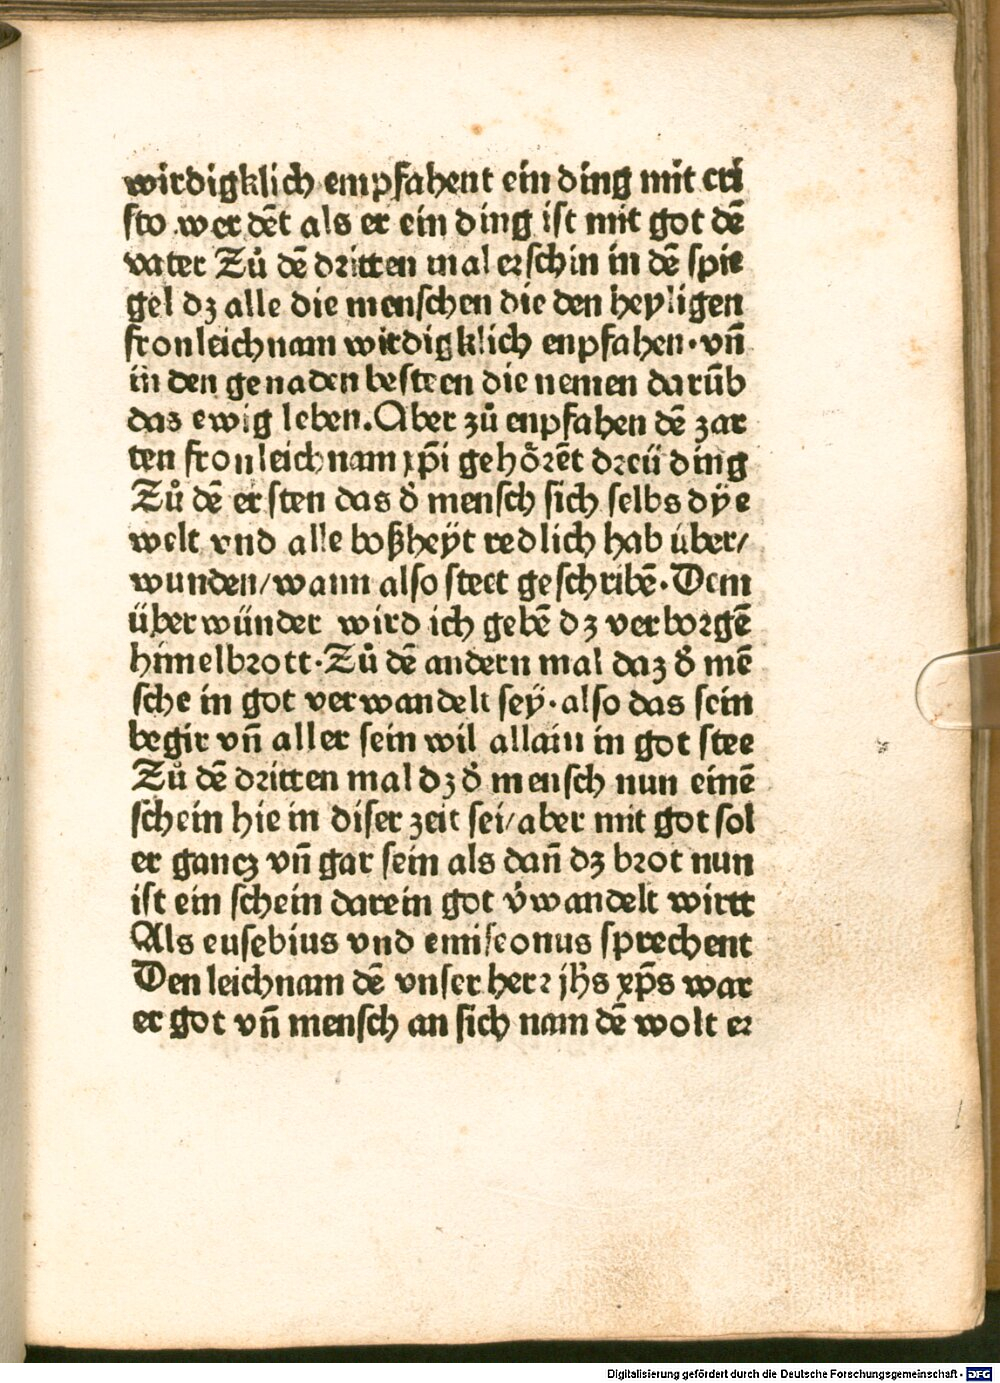 wirdigklich empfahent ein ding mit cri
sto werdẽt als er ein ding ist mit got dẽ
vater Zů dẽ dritten mal erschin in dẽ spie
gel dz alle die menschen die den heyligen
fronleichnam wirdigklich enpfahen·vñ
in den genaden besteen die nemen darũb
das ewig leben.Aber zů enpfahen dẽ zar
ten fronleichnam xp̃i gehoͤrẽt dreü ding
Zů dẽ ersten das d̓ mensch sich selbs dÿe
welt vnd alle boßheÿt redlich hab über/
wunden/wann also steet geschribẽ·Dem
überwünder wird ich gebẽ dz verborgẽ
himelbrott·Zů dẽ andern mal daz d̓ mẽ
sche in got verwandelt seÿ·also das sein
begir vñ aller sein wil allain in got stee
Zů dẽ dritten mal dz d̓ mensch nun einẽ
schein hie in diser zeit sei/aber mit got sol
er gancz vñ gar sein als dañ dz brot nun
ist ein schein darein got v̓wandelt wirtt
Als eusebius vnd emiseonus sprechent
Den leichnam dẽ vnser herr jh̃s xp̃s war
er got vñ mensch an sich nam dẽ wolt er
Digitalisierung gefördert durch die Deutsche Forschungsgemeinschaft - DFG